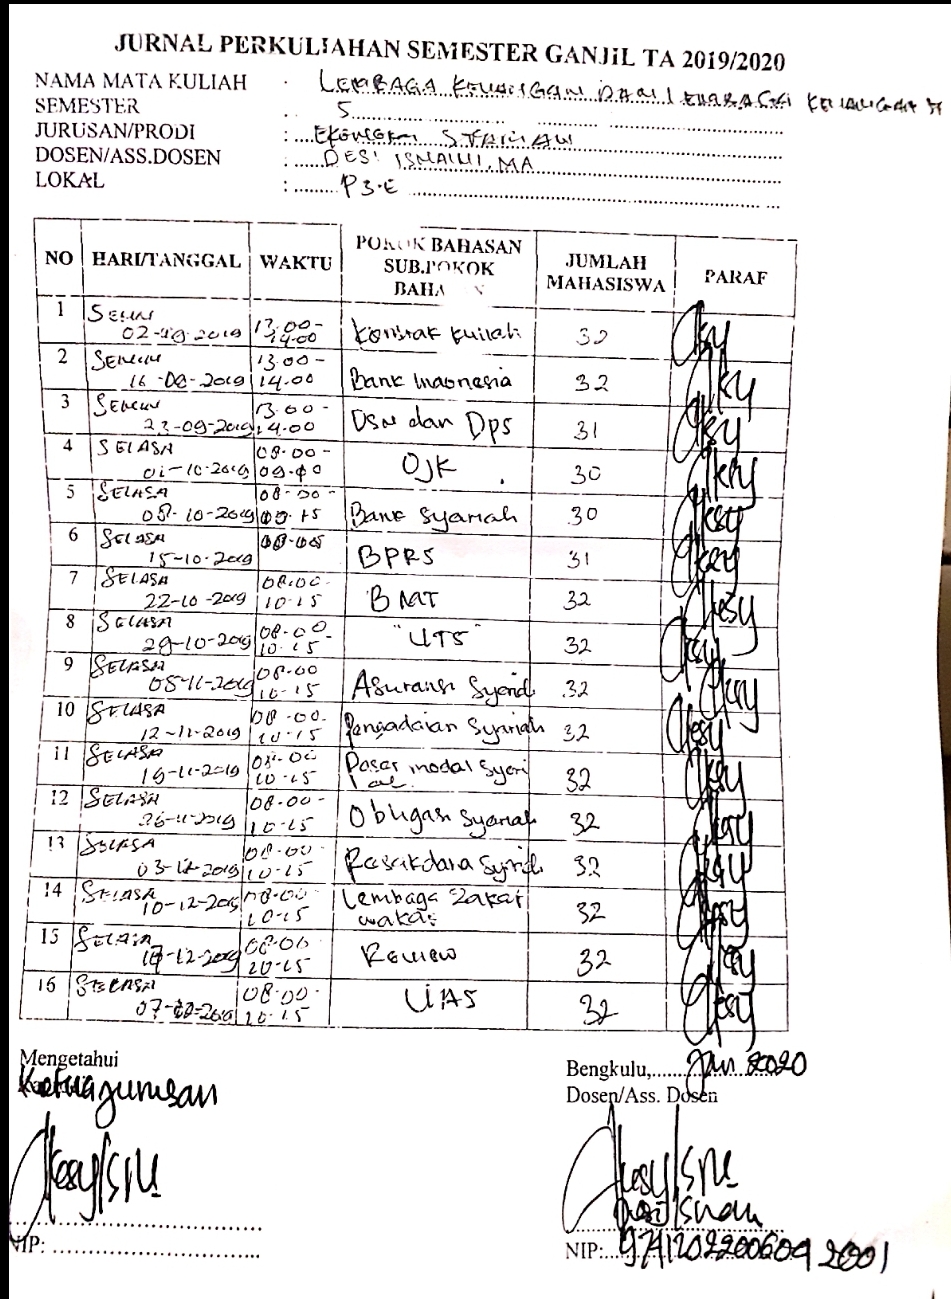 JURNAL PERKULIAHAN SEMESTER GANJIL TA 2019/2020
NAMA MATA KULIAH : LEMBAGA KEUANGAN DAN LEMBAGA KEUANGAN
SEMESTER : 5
JURUSAN/PRODI : EKONOMI SYARIAH
DOSEN/ASS.DOSEN : DESI ISNAINI, MA
LOKAL : P3.E
NO HARI/TANGGAL WAKTU POKOK BAHASAN SUB.POKOK BAHASAN JUMLAH MAHASISWA PARAF
1 SENIN 13.00-14.00 Kontrak kuliah 32
2 SENIN 16-09-2019 13.00-14.00 Bank Indonesia 32
3 SENIN 23-09-2019 13.00-14.00 DSN dan DPS 31
4 SELASA 01-10-2019 08.00- OJK 30
5 SELASA 08-10-2019 08.00-09.15 Bank Syariah 30
6 SELASA 15-10-2019 BPRS 31
7 SELASA 22-10-2019 08.00-10.15 BMT 32
8 SELASA 29-10-2019 08.00-10.15 "UTS" 32
9 SELASA 05-11-2019 08.00 10-15 Asuransi Syariah 32
10 SELASA 12-11-2019 08.00-10.15 Pengadaian Syariah 32
11 SELASA 19-11-2019 08.00 10-15 Pasar modal Syari 32
12 SELASA 26-11-2019 08.00-10-15 Obligasi Syariah 32
13 SELASA 03-12-2019 08.00-10-15 Reksadana Syariah 32
14 SELASA 10-12-2019 08.00-10.15 Lembaga Zakat wakaf 32
15 SELASA 17-12-2019 08.00 10-15 Review 32
16 SELASA 08.00-10.15 UAS 32
Mengetahui
Ketua Jurusan
Bengkulu, Jan 2020
Dosen/Ass. Dosen
Desi Isnaini
NIP:
NIP: 197412022006042001